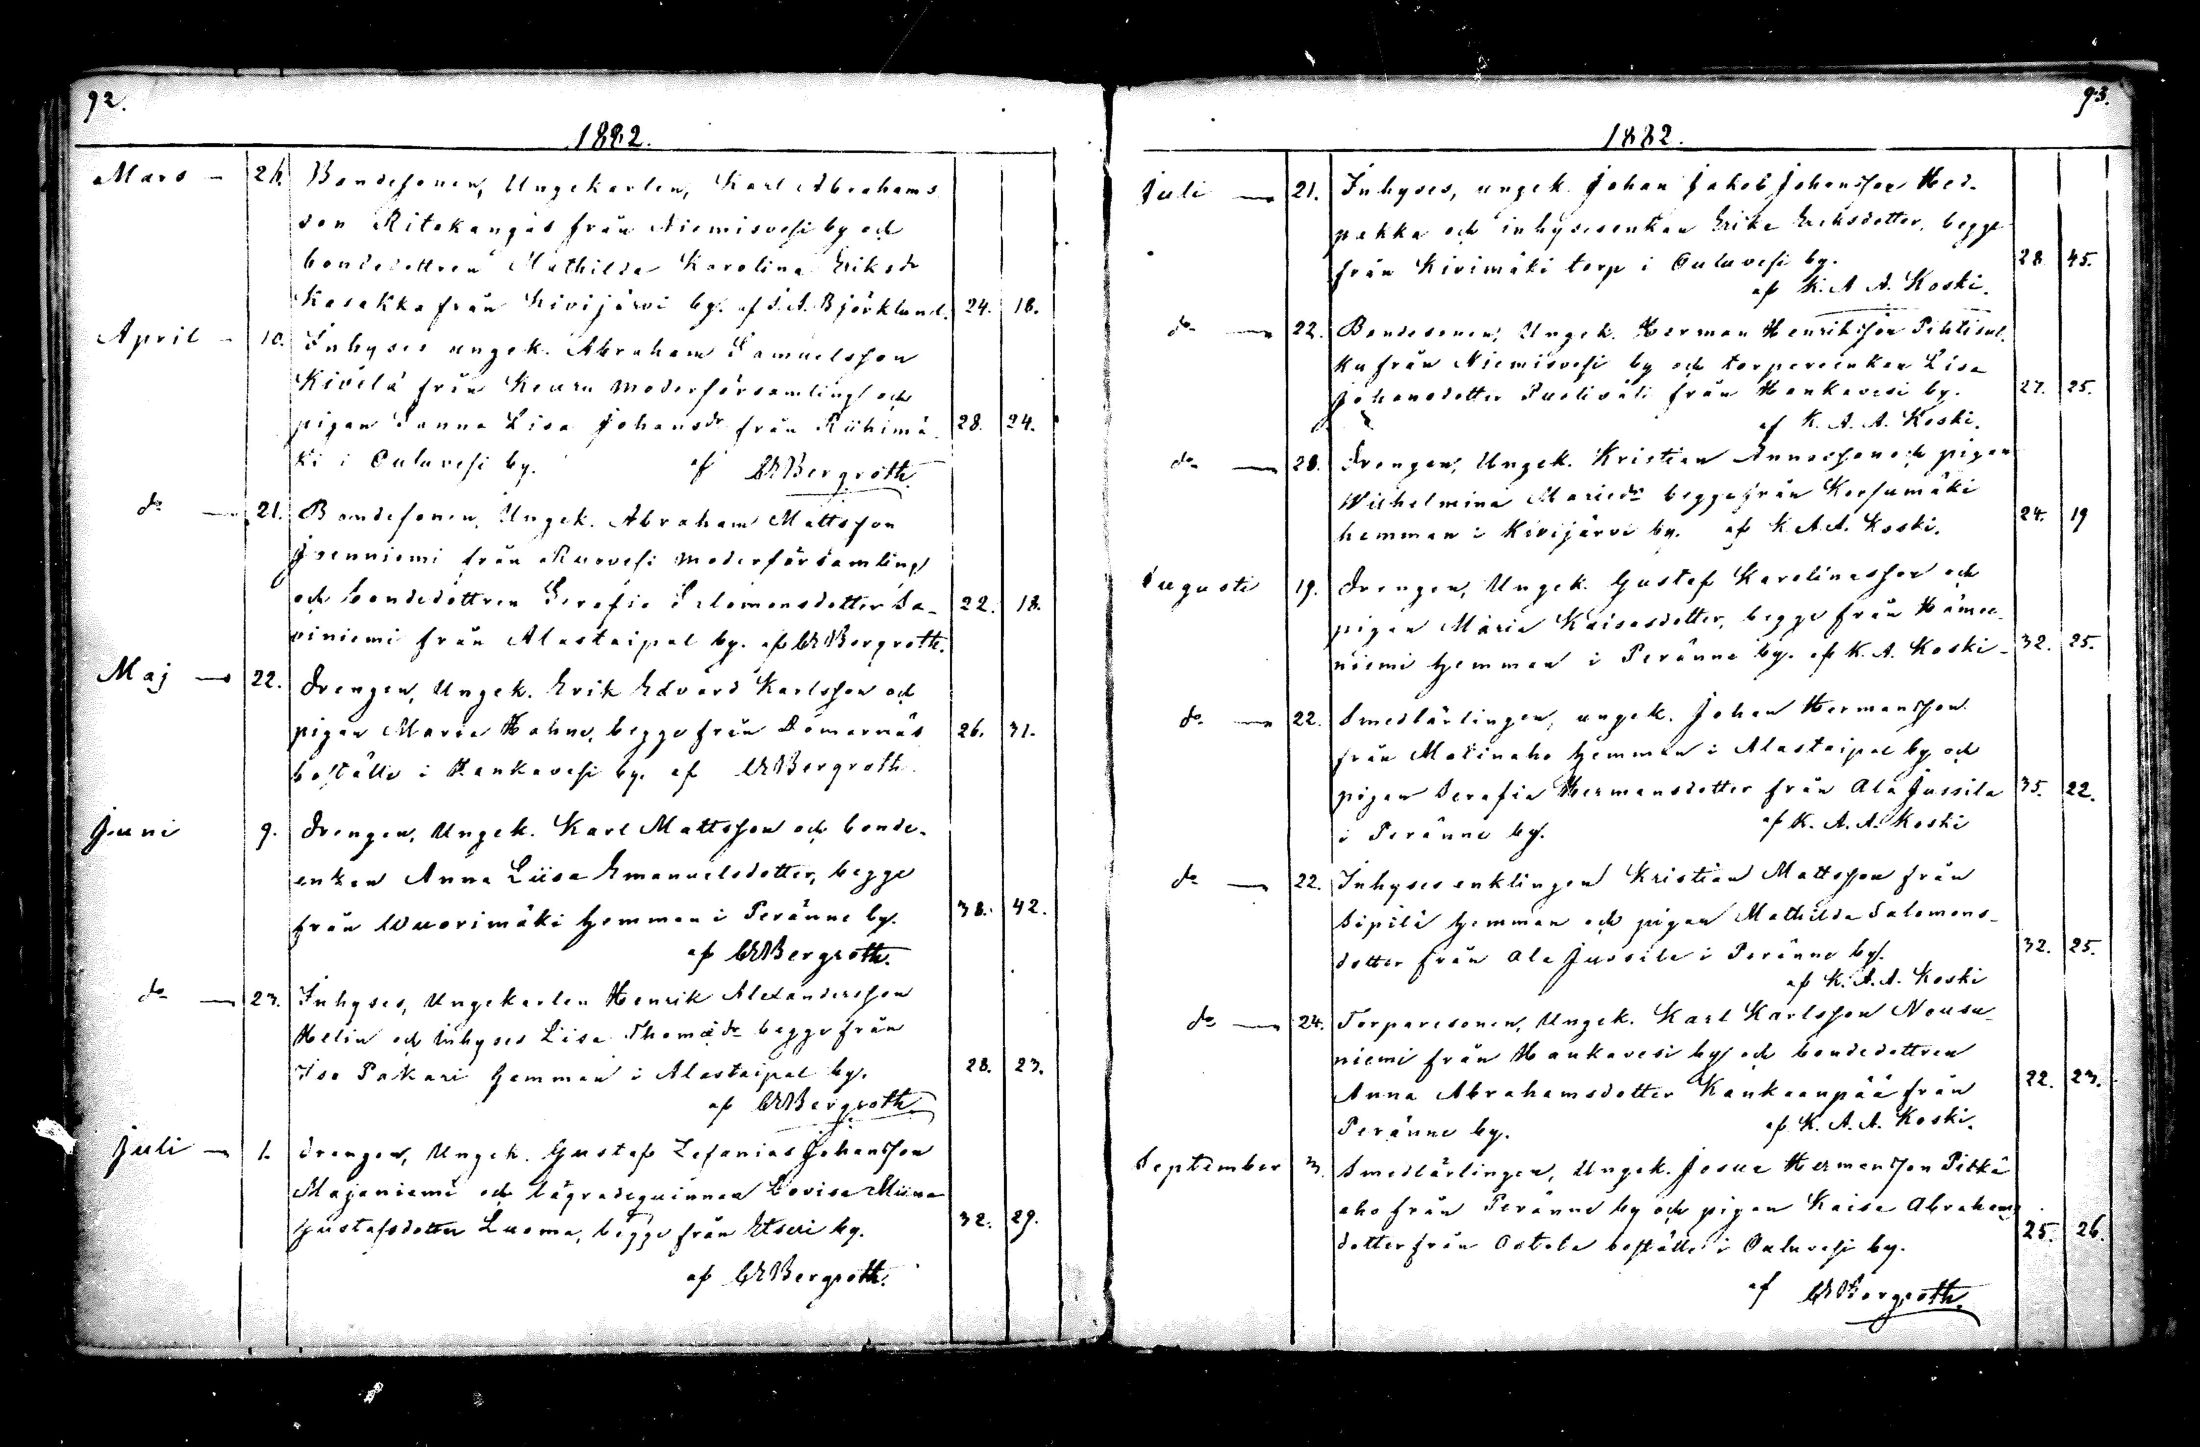 92.
1882.
Mars — 24. Bondesonen, Ungekarlen, Karl Abrahams
son Ritokangas från Niemisvesi by och
bondedottren Mathilda Karolina Eriksdr
Kasakka från Kivijärvi by. af J. A. Björklund. 24. 18.
April — 10. Inhyses ungek. Abraham Samuelsson
Kivelä från Keuru moderförsamling och
pigan Sanna Lisa Johansdr från Riihimä- 28. 24.
ki i Ouluvesi by. af CEBergroth.
do — 21. Bondesonen, Ungek. Abraham Mattsson
från Ruovesi moderförsamling
och bondedottren Serafia Salomonsdotter Sa- 22. 18.
viniemi från Alastaipal by. af CEBergroth.
Maj — 22. Drengen, Ungek. Erik Edvard Karlsson och
pigan Maria Hahne, begge från Domarnäs 26. 31.
boställe i Hankavesi by. af CEBergroth.
Juni 9. Drengen, Ungek. Karl Mattsson och bonde-
enkan Anna Liisa Emanuelsdotter, begge
från Wuorimäki hemman i Peränne by. 38. 42.
af CEBergroth.
do — 23. Inhyses, Ungekarlen Henrik Alexandersson
Helin och inhyses Lisa Thomædr begge från
Iso Pakari hemman i Alastaipal by. 28. 23.
af CEBergroth
Juli — 1. Drengen, Ungek. Gustaf Zefanias Johansson
Majaniemi och lägradeqvinnan Lovisa Miina
Gustafsdotter Luoma, begge från Etseri by. 32. 29.
af CEBergroth.
93.
1882.
Juli — 21. Inhyses, ungek. Johan Jakob Johansson Hed-
pakka och inhysesenkan Erika Eriksdotter, begge
från Kivimäki torp i Ouluvesi by. 28. 45.
af K. A. A. Koski.
do — 22. Bondesonen, Ungek. Herman Henriksson Pihlisul-
ku från Niemisvesi by och torpareenkan Lisa
Johansdotter Puoliväli från Hankavesi by. 27. 25.
af K. A. A. Koski.
do — 28. Drengen, Ungek. Kristian Annasson och pigan
Wilhelmina Mariedr begge från Korsumäki
hemman i Kivijärvi by. af K. A. A. Koski. 24. 19
Augusti 19. Drengen, Ungek. Gustaf Karolinasson och
pigan Maria Kaisasdotter, begge från Hämee-
niemi hemman i Peränne by. af K. A. Koski — 32. 25.
do — 22. Smedlärlingen, ungek. Johan Hermansson
från Matinaho hemman i Alastaipal by och
pigan Serafia Hermansdotter från Ala Jussila 35. 22.
i Peränne by. af K. A. A. Koski
do — 22. Inhysesenklingen Kristian Mattsson från
Sipilä hemman och pigan Mathilda Salomons-
dotter från Ala Jussila i Peränne by. 32. 25.
af K. A. A. Koski
do — 24. Torparesonen, Ungek. Karl Karlsson Nousu-
niemi från Hankavesi by och bondedottren
Anna Abrahamsdotter Kankaanpää från 22. 23.
Peränne by. af K. A. A. Koski.
September 3. Smedlärlingen, Ungek. Josua Hermansson Pitkä
aho från Peränne by och pigan Kaisa Abrahams
dotter från Ostola boställe i Ouluvesi by. 25. 26.
af CEBergroth.